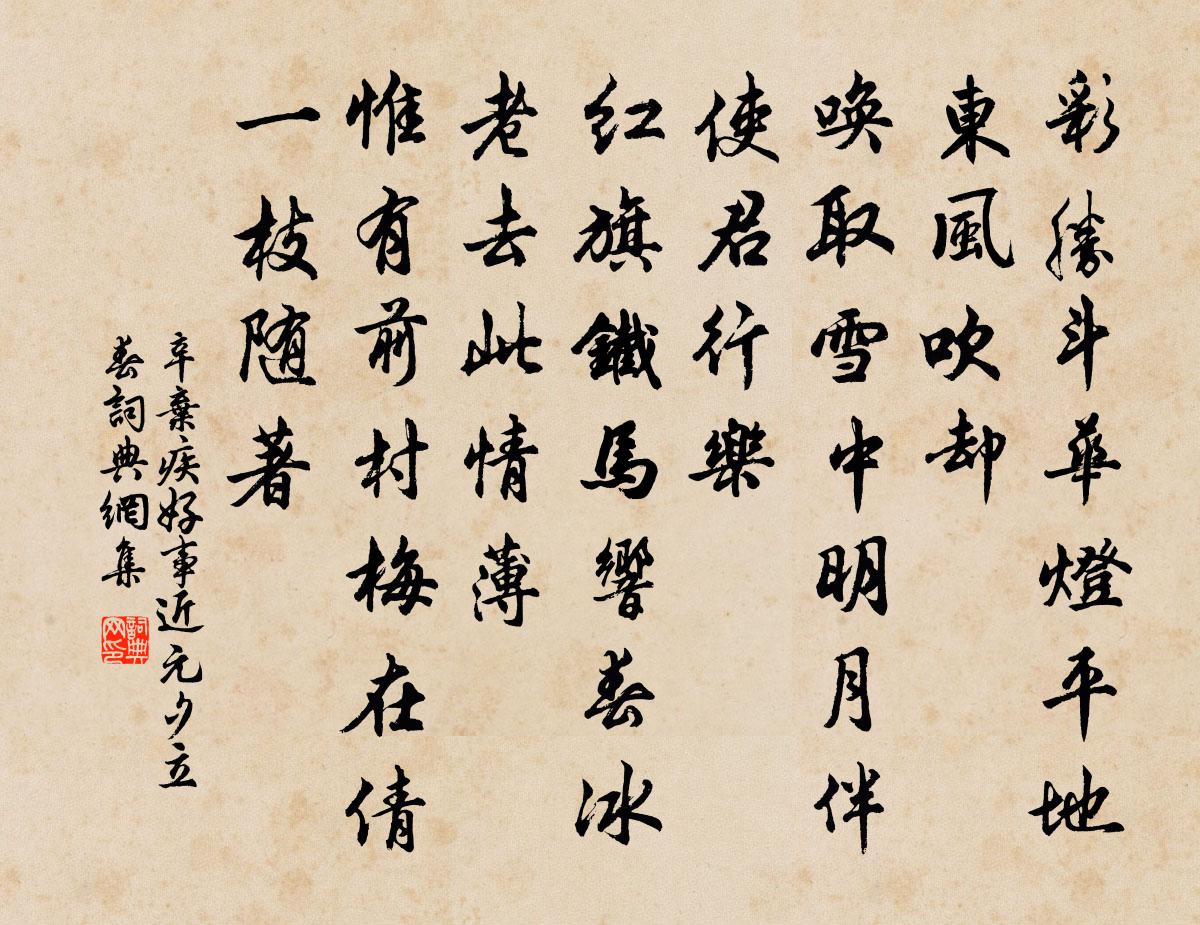 彩勝斗華燈平地
東風吹却
喚取雪中明月伴
使君行樂
紅旗鐵馬響春冰
老去此情薄
惟有前村梅在倩
一枝随著
辛棄疾好事近元夕立
春詞典網集
詞典网印